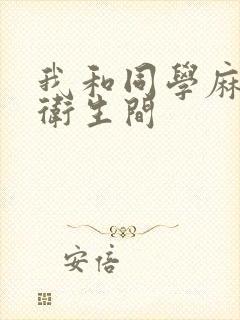 我和同學麻
衛生間
安倍